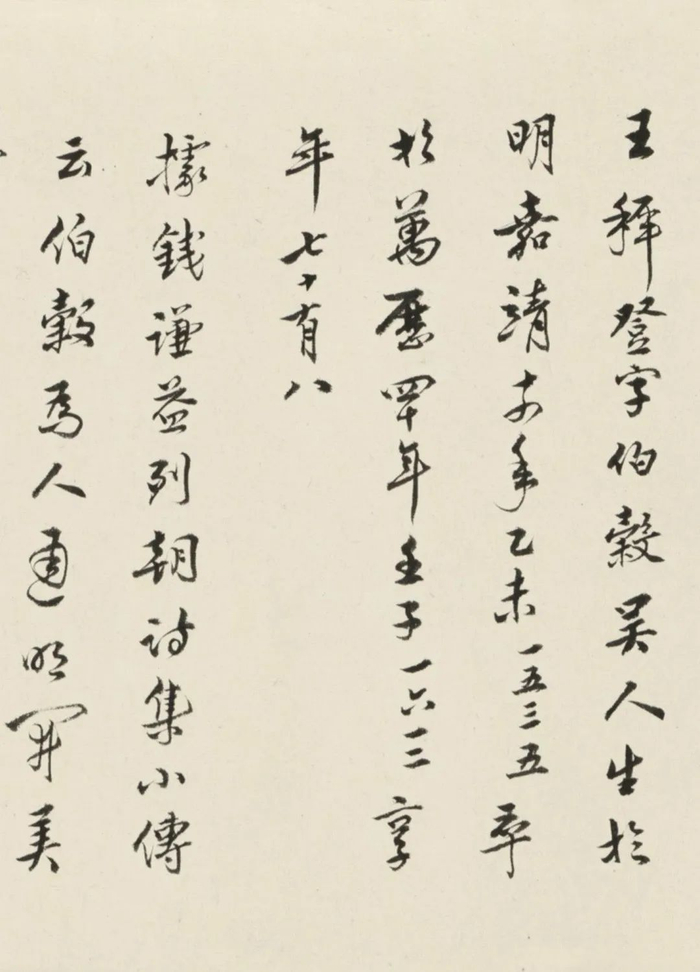 王穉登字伯穀吴人生於
明嘉靖十四年乙未一五三五卒
於萬曆四十年壬子一六一二享
年七十有八
據錢謙益列朝詩集小傳
云伯穀為人通明開美